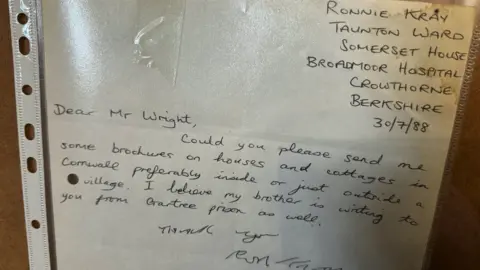 RONNIE KRAY
TAUNTON WARD
SOMERSET HOUSE
BROADMOOR HOSPITAL
CROWTHORNE
BERKSHIRE
30/7/88
Dear Mr Wright,
Could you please send me
some brochures on houses and cottages in
Cornwall preferably inside or just outside a
village. I believe my brother is writing to
you from Gartree prison as well.
Thank you